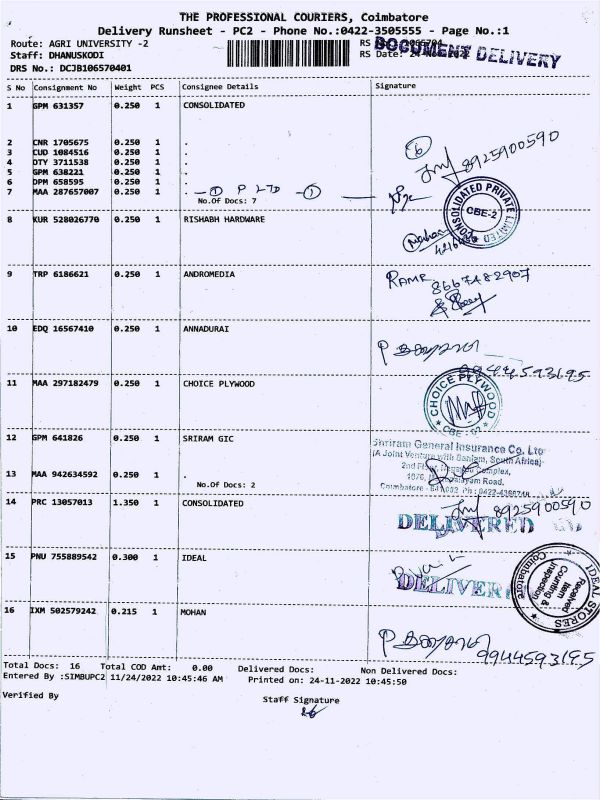 THE PROFESSIONAL COURIERS, Coimbatore
Delivery Runsheet - PC2 - Phone No.:0422-3505555 - Page No.:1
Route: AGRI UNIVERSITY -2
Staff: DHANUSKODI
DRS No.: DCJB106570401
RS
RS Date: 24
DOCUMENT DELIVERY
S No Consignment No Weight PCS Consignee Details Signature
1 GPM 631357 0.250 1 CONSOLIDATED
2 CNR 1705675 0.250 1 .
3 CUD 1084516 0.250 1 .
4 DTY 3711538 0.250 1 .
5 GPM 638221 0.250 1 .
6 DPM 658595 0.250 1 .
7 MAA 287657007 0.250 1 .
6
8925900590
1 P LTD 1
No.Of Docs: 7
CONSOLIDATED PRIVATE LIMITED
CBE-2
8 KUR 528026770 0.250 1 RISHABH HARDWARE
9 TRP 6186621 0.250 1 ANDROMEDIA
8667482907
10 EDQ 16567410 0.250 1 ANNADURAI
9944593195
11 MAA 297182479 0.250 1 CHOICE PLYWOOD
CHOICE PLYWOOD
CBE - 02
12 GPM 641826 0.250 1 SRIRAM GIC
Shriram General Insurance Co. Ltd
(A Joint Venture with Sanlam, South Africa)
2nd Floor, Complex,
1076, Road,
Coimbatore - 641002. Ph : 0422-
13 MAA 942634592 0.250 1 .
No.Of Docs: 2
14 PRC 13057013 1.350 1 CONSOLIDATED
8925900590
DELIVERED
15 PNU 755889542 0.300 1 IDEAL
DELIVER
IDEAL STORES
Received
Item
Counting &
Inspection
Coimbatore
16 IXM 502579242 0.215 1 MOHAN
9944593195
Total Docs: 16 Total COD Amt: 0.00 Delivered Docs: Non Delivered Docs:
Entered By :SIMBUPC2 11/24/2022 10:45:46 AM Printed on: 24-11-2022 10:45:50
Verified By
Staff Signature